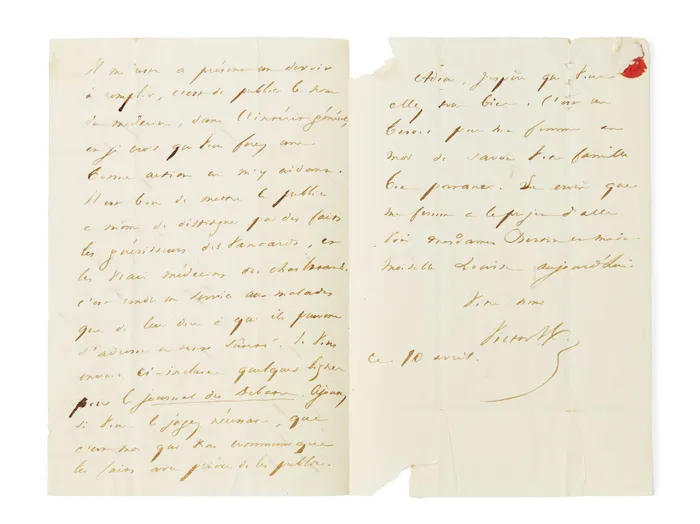 Il me reste à présent un devoir
à remplir, c'est de publier le nom
du médecin, dans l'intérêt général,
et je crois que vous ferez une
bonne action en m'y aidant.
Il est bon de mettre le public
à même de distinguer par des faits
les guérisseurs des vantards, et
les vrais médecins des charlatans.
c'est rendre un service aux malades
que de leur dire à qui ils peuvent
s'adresser en toute sûreté. Je vous
envoie ci-inclus quelques lignes
pour le Journal des Débats. Ajoutez,
si vous le jugez nécessaire, que
c'est moi qui vous communique
les faits avec prière de les publier.
Adieu, j'espère que vous
allez tous bien. C'est un
besoin pour ma femme et
moi de savoir votre famille
bien portante. Je crois que
ma femme a le projet d'aller
voir mesdames Bertin et made-
moiselle Louise aujourd'hui.
Votre ami
Victor H.
Ce 10 avril.